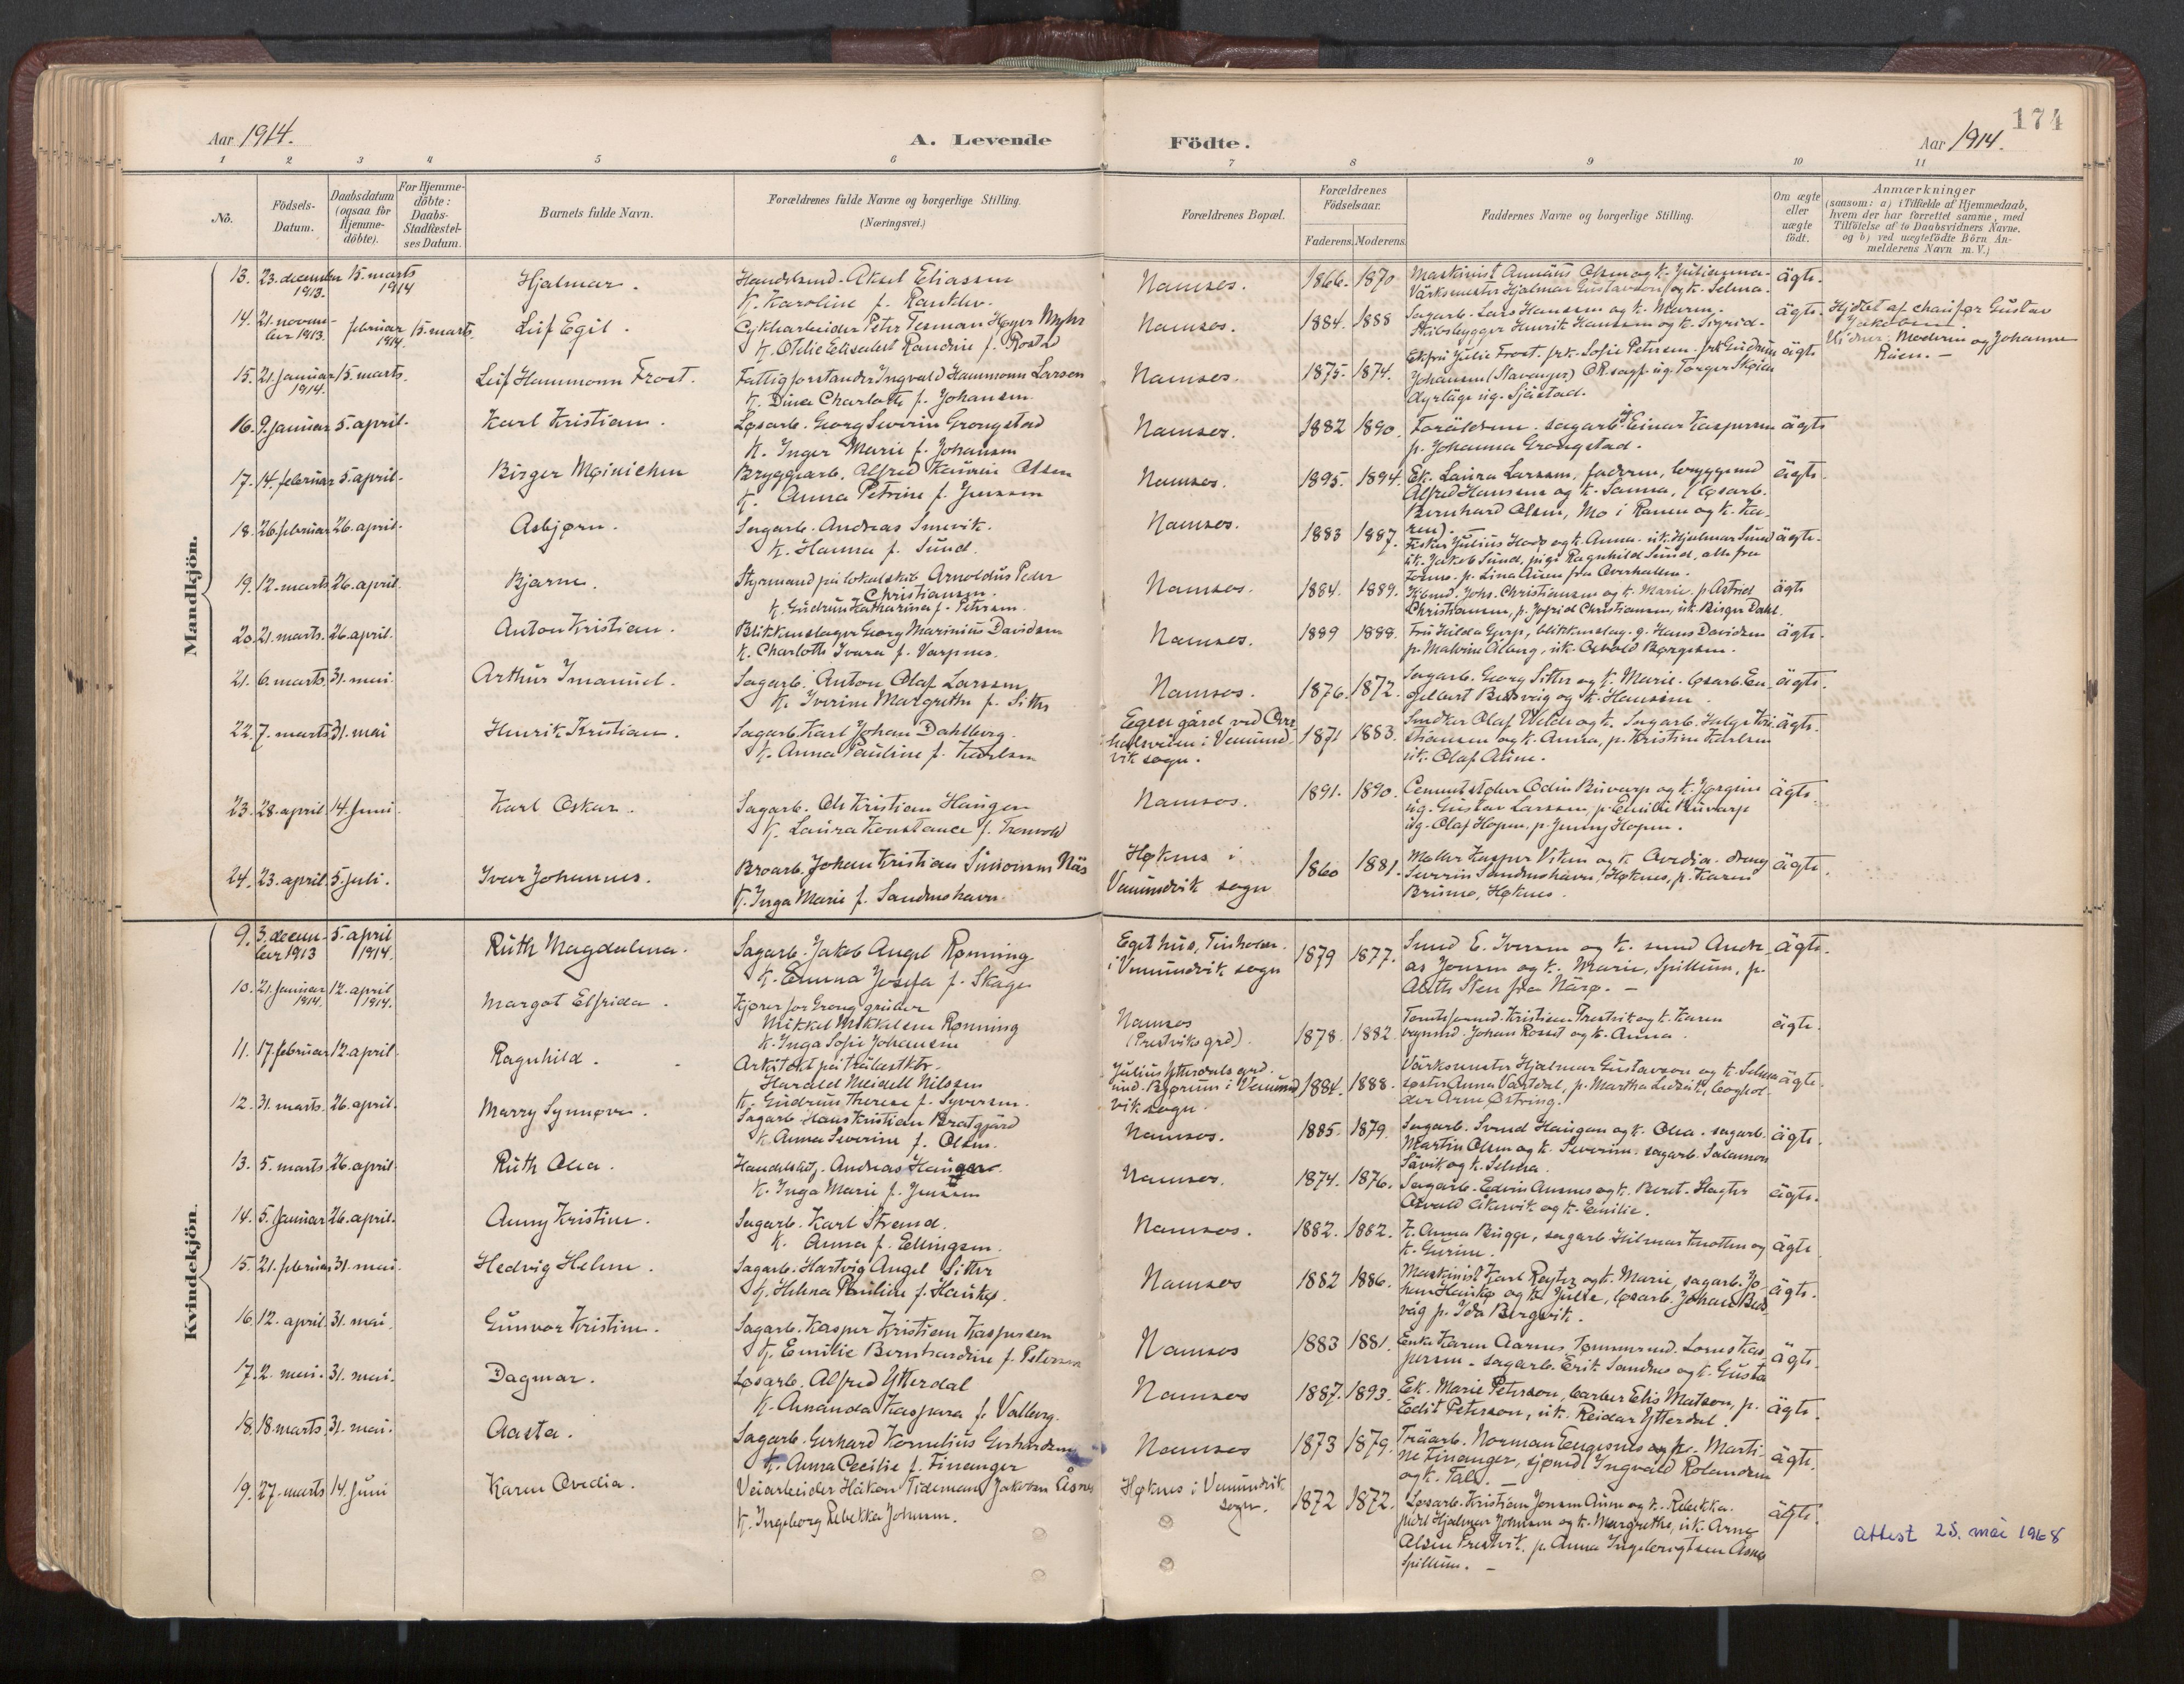 174
Aar 1914.
A. Levende
Födte.
Aar 1914.
1 2 3 4 5 6 7 8 9 10 11
No.
Födsels-
Datum.
Daabsdatum
(ogsaa for
Hjemme-
döbte).
For Hjemme-
döbte:
Daabs-
Stadfæstel-
ses Datum.
Barnets fulde Navn.
Forældrenes fulde Navne og borgerlige Stilling.
(Næringsvei.)
Forældrenes Bopæl.
Forældrenes
Födselsaar.
Faderens. Moderens.
Faddernes Navne og borgerlige Stilling.
Om ægte
eller
uægte
födt.
Anmærkninger
(saasom: a) i Tilfælde af Hjemmedaab,
hvem der har forrettet samme, med
Tilföielse af to Daabsvidners Navne.
og b) ved uægtefödte Börn An-
melderens Navn m. V.)
Mandkjön.
13. 23. december 1913. 15. marts 1914
Hjalmar.
Aksel Eliassen
K. Karoline f.
Namsos.
1866. 1870
Maskinist Annäus Olsen og k. Julianna.
Värksmester Hjalmar Gustavson og k. Selma.
ägte.
14. 21. novem-
ber 1913. februar 1914. 15. marts.
Leif Egil.
Peter Tesman Høyer Myhr
K. Othlie Elisabet Randine f. Rostad
Namsos.
1884. 1888
Sagarb. Lars Hanssen og k. Maren.
Skibsbygger Henrik Hanssen og k. Sigrid.
ägte.
Hjdbt af chaufør Gustav
Jakobsen.
Vidner: Moderen og Johanne
15. 21. januar 1914. 15. marts.
Leif Hammonn Frost.
Fattigforstander Ingvald Hammonn Larssen
K. Dina Charlotte f. Johansen
Namsos.
1875. 1874.
Julie Frost. frk. Sofie Petersen. frk Gudrun
Johansen (Stavanger)
dyrläge ug. Sjåstad.
ägte
16. 9. januar 5. april.
Karl Kristian.
Løsarb. Georg Severin Grongstad
K. Inger Marie f. Johansen
Namsos.
1882 1890.
Foräldrene. sagarb. Einar Kaspersen
p. Johanna Grongstad.
ägte
17. 14. februar 5. april.
Birger Møinichen
Bryggearb. Alfred Olsen
K. Anna Petrine f. Jenssen
Namsos.
1895. 1894.
Ek. Laura Larssen, faderen,
Alfred Hanssen og k. Sanna, (løsarb.
Bernhard Olsen, Mo i Ranen og k. Ka-
ren).
ägte.
18. 26. februar 26. april.
Asbjørn.
Sagarb. Andreas
K. Hanna f. Sund.
Namsos.
1883 1887.
Fisker Julius og k. Anna. uk. Hjalmar Sund
uk. Jakob Sund, pige Ragnhild Sund, alle fra
p. Lina fra Overhallen.
ägte.
19. 12. marts 26. april.
Bjarne.
Styrmand på lokalskib Arnoldus Peder
Christiansen.
K. Gudrun Katharina f. Petersen.
Namsos.
1884. 1889.
Johs. Christiansen og k. Marie. p. Astrid
Christiansen, p. Jofrid Christiansen, uk. Birger Dahl.
ägte
20. 21. marts. 26. april.
Anton Kristian.
Blikkenslager Georg Marinius Davidsen
K. Charlotte Ivara f. Varpnes.
Namsos.
1889 1888.
Fru Hilda, blikkenslag. g. Hans Davidsen
p. Malvine Alberg, uk. Osvald Børgesen.
ägte.
21. 6. marts. 31. mai.
Arthur Imanuel.
Sagarb. Anton Olaf Larssen
K. Iverine Margrethe f. Sitter
Namsos.
1876. 1872.
Sagarb. Georg Sitter og k. Marie. løsarb. En-
gelbert og k. Hansine.
ägte.
22. 7. marts 31. mai
Henrik Kristian.
Sagarb. Karl Johan Dahlberg.
K. Anna Pauline f. Karlsen
Egen gård ved Over-
hallsveien i Vemund-
vik sogn.
1871 1883.
Snedker Olaf Welde og k. Sagarb. Helge Kri-
stiansen og k. Anna, p. Kristine Karlsen
uk. Olaf Aune.
ägte.
23. 28. april. 14. juni.
Karl Oskar.
Sagarb. Ole Kristian Haugen
K. Laura Konstance f.
Namsos.
1891. 1890.
Cementstøber Odin og k. Jørgine
ug. Gustav Larssen, p. Emilie
ug. Olaf Hopen. p. Jenny Hopen.
ägte.
24. 23. april. 5. juli.
Ivar Johannes.
Broarb. Johan Kristian Simonsen Näs
K. Inga Marie f. Sandneshavn.
Høknes i
Vemundvik sogn
1860 1881.
Møller Kasper Viken og k. Ovedia. dreng
Severin Sandneshavn, Høknes, p. Karen
Brismo, Høknes.
ägte.
Kvindekjön.
9. 3. decem-
ber 1913 5. april 1914.
Ruth Magdalena.
Sagarb. Jakob Angel Rønning
K. Emma Josefa f. Skage
Eget hus,
i Vemundvik sogn
1879 1877.
Smed E. Iversen og k. smed Andre-
as Jensen og k. Marie, Spillum, p.
Aleth Sten fra Närø. –
ägte.
10. 21. januar 1914. 12. april 1914.
Margot Elfrida.
Kjører for Grong gruber
Mikkel Mikkelsen Rønning
K. Inga Sofie Johansen
Namsos
(Prestviks grd).
1878. 1882.
Kristian Prestvik og k. Karen
Johan Rosset og k. Anna.
ägte.
11. 17. februar 12. april.
Ragnhild.
Arkitekt på trälastktor.
Harald Meidell Nilssen
K. Gudrun Therese f. Syversen.
Julius Ytterdals grd.
Bjørum i Vemund-
vik sogn.
1884. 1888.
Värksmester Hjalmar Gustavson og k. Selma
søster Anna Vartdal, p. Martha Ledsåk, boghol-
der Arne Østring.
ägte.
12. 31. marts. 26. april.
Marry Synnøve.
Sagarb. Hans Kristian Bratgjärd
K. Anna Severine f. Olsen.
Namsos.
1885. 1879.
Sagarb. Svend Haugan og k. Olea. sagarb.
Martin Olsen og k. Severine. sagarb. Salamon
Sävik og k. Selma.
ägte.
13. 5. marts 26. april.
Ruth Olea.
Andreas Haugen
K. Inga Marie f. Jenssen
Namsos.
1874. 1876.
Sagarb. Edvin og k. Beret. Slagter
Osvald Åkervik og k. Emilie.
ägte.
14. 5. januar 26. april.
Anny Kristine.
Sagarb. Karl Strand.
K. Anna f. Ellingsen.
Namsos.
1882. 1882.
K. Anna Brügge, sagarb. Hilmar og
K. Gurine.
ägte.
15. 21. februar 31. mai.
Hedvig Helene.
Sagarb. Hartvig Angel Sitter
K. Helena Pauline f. Hauskø.
Namsos
1882 1886.
Maskinist Karl Røyter og k. Marie, sagarb. Jo-
han Hauskø og k. Julie, løsarb. Johan Beds-
våg p. Ida Bergsvik.
ägte.
16. 12. april. 31. mai.
Gunvor Kristine.
Sagarb. Kasper Kristian Kaspersen
K. Emilie Bernhardine f. Petersen
Namsos
1883 1881.
Enke Karen Aarnes. Tømmermd. Lornts Kas-
persen. sagarb. Erik Sandnes og k. Gusta
ägte.
17. 2. mai. 31. mai.
Dagmar.
Løsarb. Alfred Ytterdal
K. Amanda Kaspara f. Valberg.
Namsos
1887. 1893.
Ek. Marie Petersson, barber Elis Matson, p.
Edit Petersson, uk. Reidar Ytterdal.
ägte.
18. 18. marts. 31. mai.
Aasta.
Sagarb. Gerhard Kornelius Gerhardsen
K. Anna Cecilie f. Finanger
Namsos
1873 1879.
Träarb. Norman og frk. Marti-
ne Finanger, sjømd Ingvald Rolandsen
og k.
ägte.
19. 27. marts 14. juni
Karen Ovedia.
Veiarbeider Håkon Tideman Jakobsen Åsnes
K. Ingeborg Rebekka Johnsen.
Høknes i Vemundvik
sogn.
1872 1872.
Løsarb. Kristian Jensen Aune og k. Rebekka.
Hjalmar Johnsen og k. Margrethe, uk. Arne
Alsen Prestvik. p. Anna Ingebrigtsen Åsnes
Spillum. –
ägte.
Attest 25. mai 1968